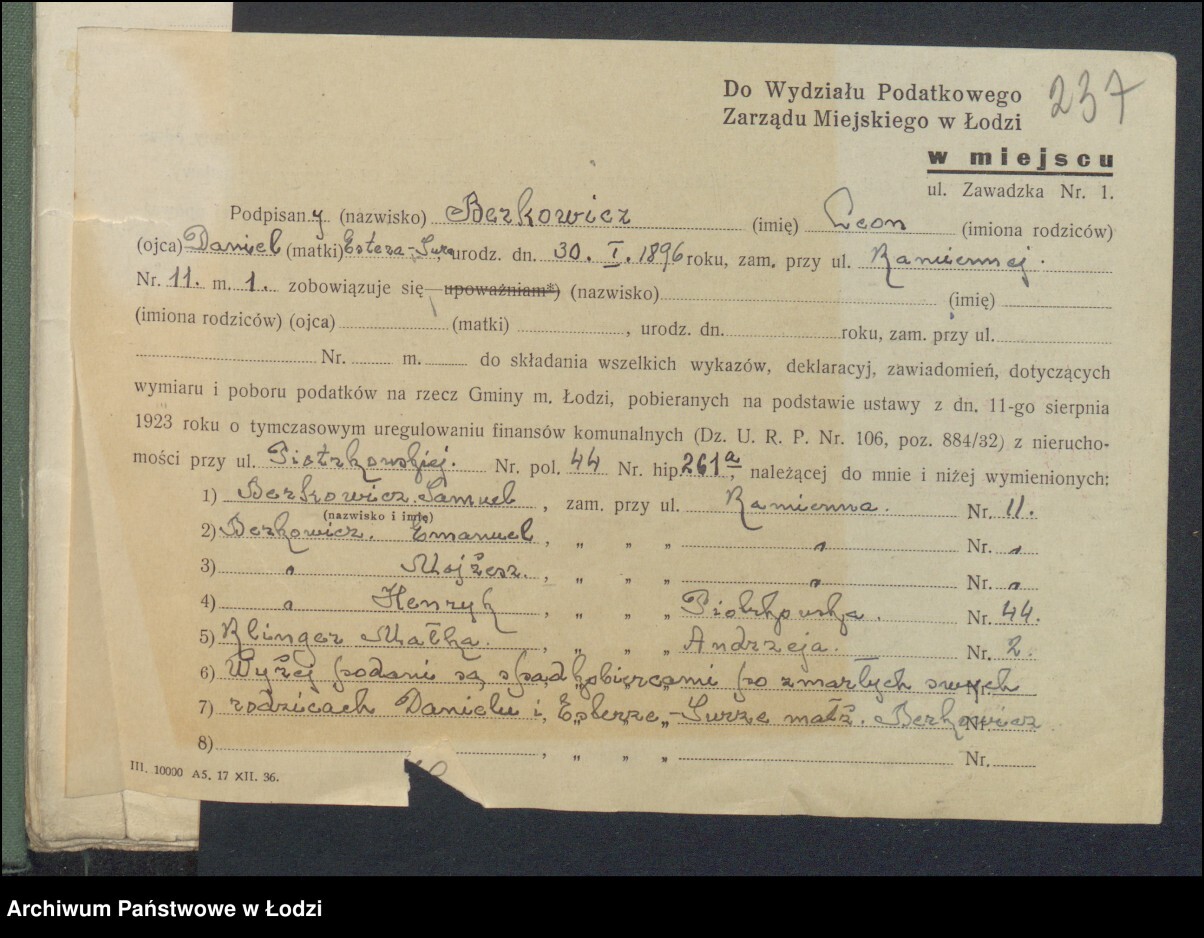 Do Wydziału Podatkowego 237
Zarządu Miejskiego w Łodzi
w miejscu
ul. Zawadzka Nr. 1.
Podpisan y (nazwisko) Berkowicz (imię) Leon (imiona rodziców)
(ojca) Daniel (matki) Estera-Sura, urodz. dn. 30. I. 1896 roku, zam. przy ul. Kamiennej.
Nr. 11. m. 1. zobowiązuje się upoważniam*) (nazwisko) (imię)
(imiona rodziców) (ojca) (matki) , urodz. dn. roku, zam. przy ul.
Nr. m. do składania wszelkich wykazów, deklaracyj, zawiadomień, dotyczących
wymiaru i poboru podatków na rzecz Gminy m. Łodzi, pobieranych na podstawie ustawy z dn. 11-go sierpnia
1923 roku o tymczasowym uregulowaniu finansów komunalnych (Dz. U. R. P. Nr. 106, poz. 884/32) z nierucho-
mości przy ul. Piotrkowskiej. Nr. pol. 44 Nr. hip. 261a, należącej do mnie i niżej wymienionych:
1) Berkowicz Samuel , zam. przy ul. Kamienna. Nr. 11.
(nazwisko i imię)
2) Berkowicz. Emanuel , „ „ „ „ Nr. „
3) „ Mojżesz. , „ „ „ „ Nr. „
4) „ Henryk , „ „ „ Piotrkowska. Nr. 44.
5) Klinger Małka. , „ „ „ Andrzeja. Nr. 2.
6) Wyżej podani są spadkobiercami po zmarłych swych Nr.
7) rodzicach Danielu i Esterze-Surze małż. Berkowicz Nr.
8) , „ „ „ Nr.
III. 10000 A5. 17 XII. 36.
Archiwum Państwowe w Łodzi